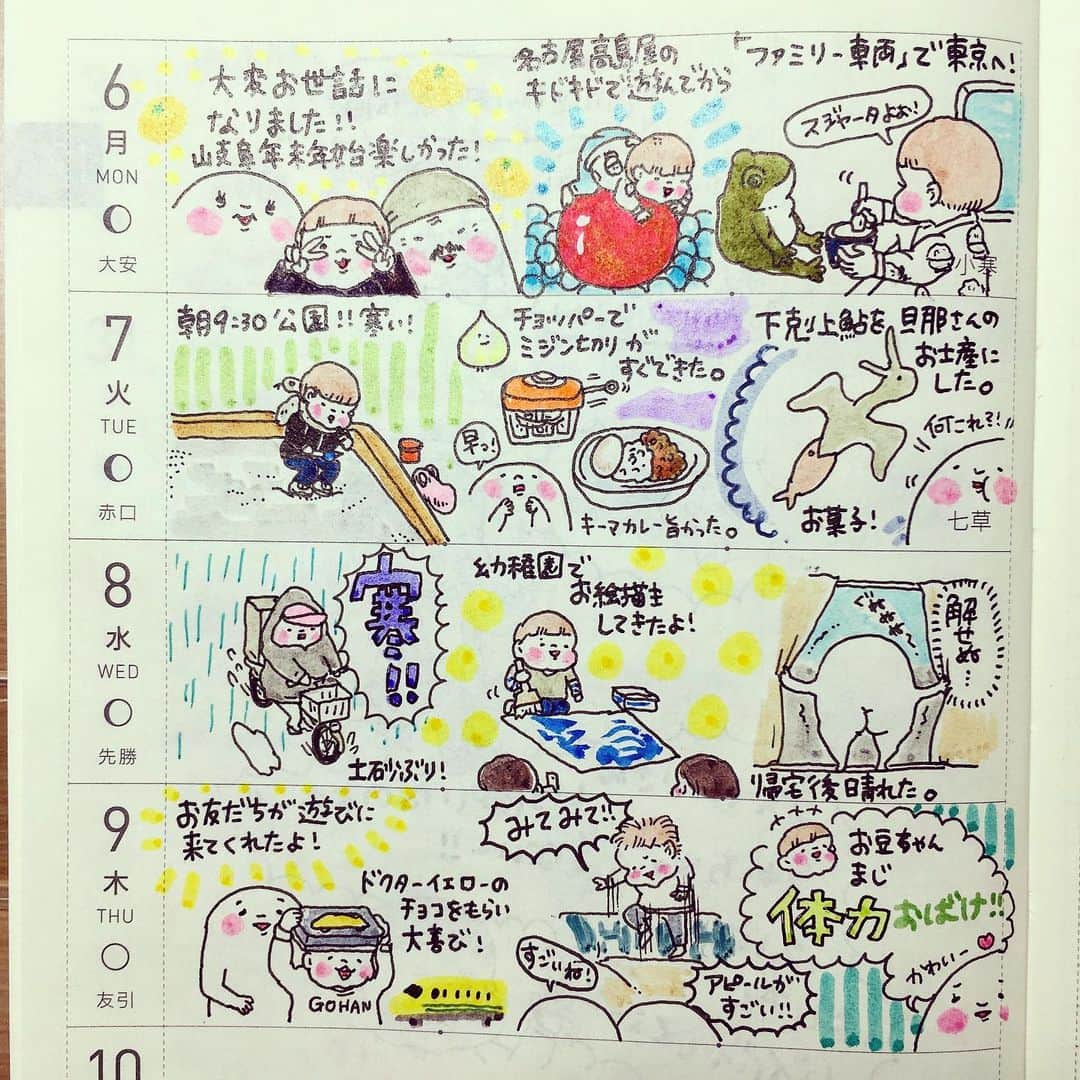 6
月
MON
大安
大変お世話に
なりました!!
岐阜年末年始楽しかった!
名古屋高島屋の
キドキドで遊んでから
「ファミリー車両」で東京へ!
スジャータよぉ!
小寒
7
火
TUE
赤口
朝9:30 公園!! 寒い!
チョッパーで
ミジン切りが
すぐできた。
早っ!
キーマカレー旨かった。
下剋上鮎を旦那さんの
お土産に
した。
何これ?!
お菓子!
七草
8
水
WED
先勝
寒!!
土砂ぶり!
幼稚園で
お絵描き
してきたよ!
ぐぬぬぬ
解せぬ…
帰宅後晴れた。
9
木
THU
友引
お友だちが遊びに
来てくれたよ!
ドクターイエローの
チョコをもらい
大喜び!
GOHAN
みてみて!!
すごいね!
アピールが
すごい!!
お豆ちゃん
まじ
体力おばけ!!
かわいー
10